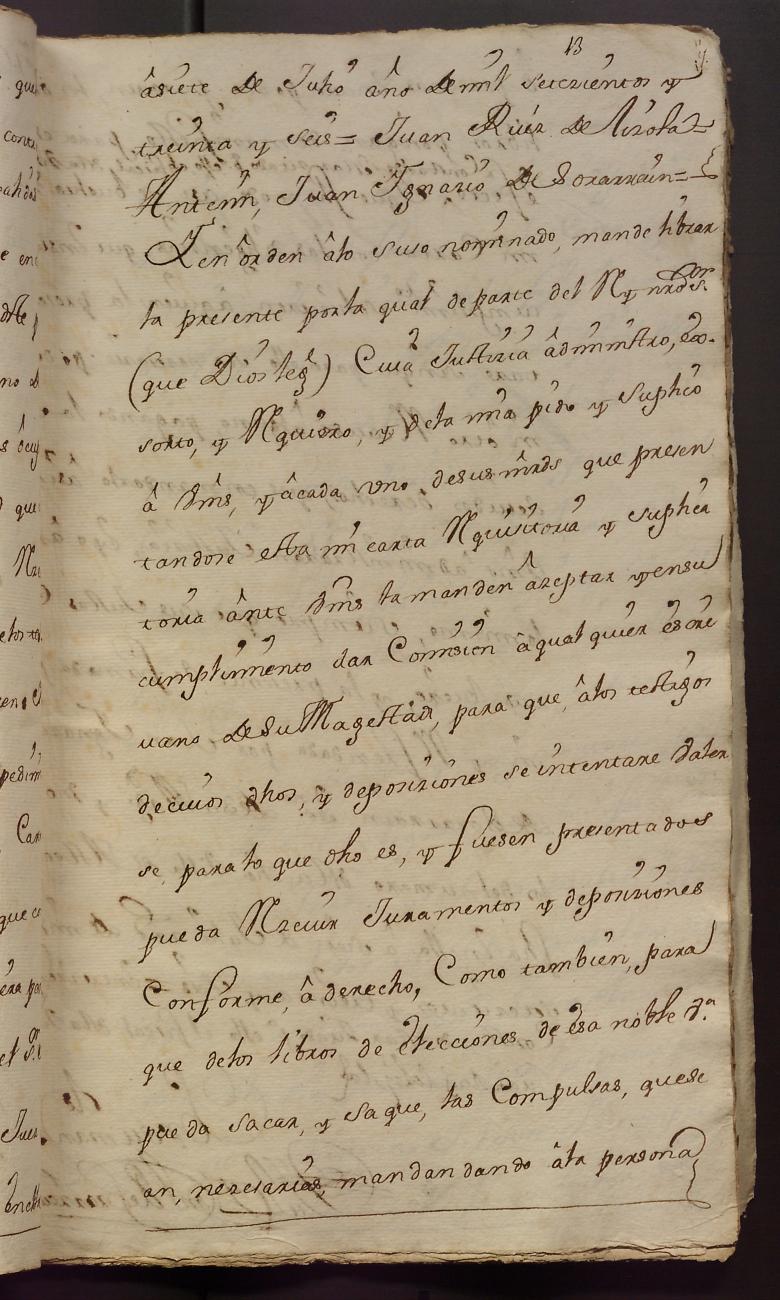 13
âsiete de Julio âño demil setezientos y
treinta y seis= Juan Ruiz de Airola=
Antemi, Juan Ygnazio de Sorarrain=
Y en orden âlo suso nominado, mande librar
la presente por la qual de parte del Rey nro Sor.
(que Dios le ge) Cuia Justizia âdministro, exo-
sorto, y Rquiero, y dela mia pido y suplico
â Vms, y âcada uno desus mrds que presen
tandose esta mi carta Rquisitoria y suplica
toria ânte Vms la manden âzeptar y ensu
cumplimiento dar Comision âqualquier escri
vano de Su Magestad, para que, âlos testigos
decuios dhos, y deposiziones se intentare baler
se, para lo que dho es, y fuesen presentados
pueda Rzeuir Juramentos y deposiziones
Conforme, â derecho, Como tambien, para
que delos libros de Elecciones de esa noble Va
pueda sacar, y saque, las Compulsas, quese
an, nezesarias, mandandando âla persona
que
conta
e en
no d
que
Juez